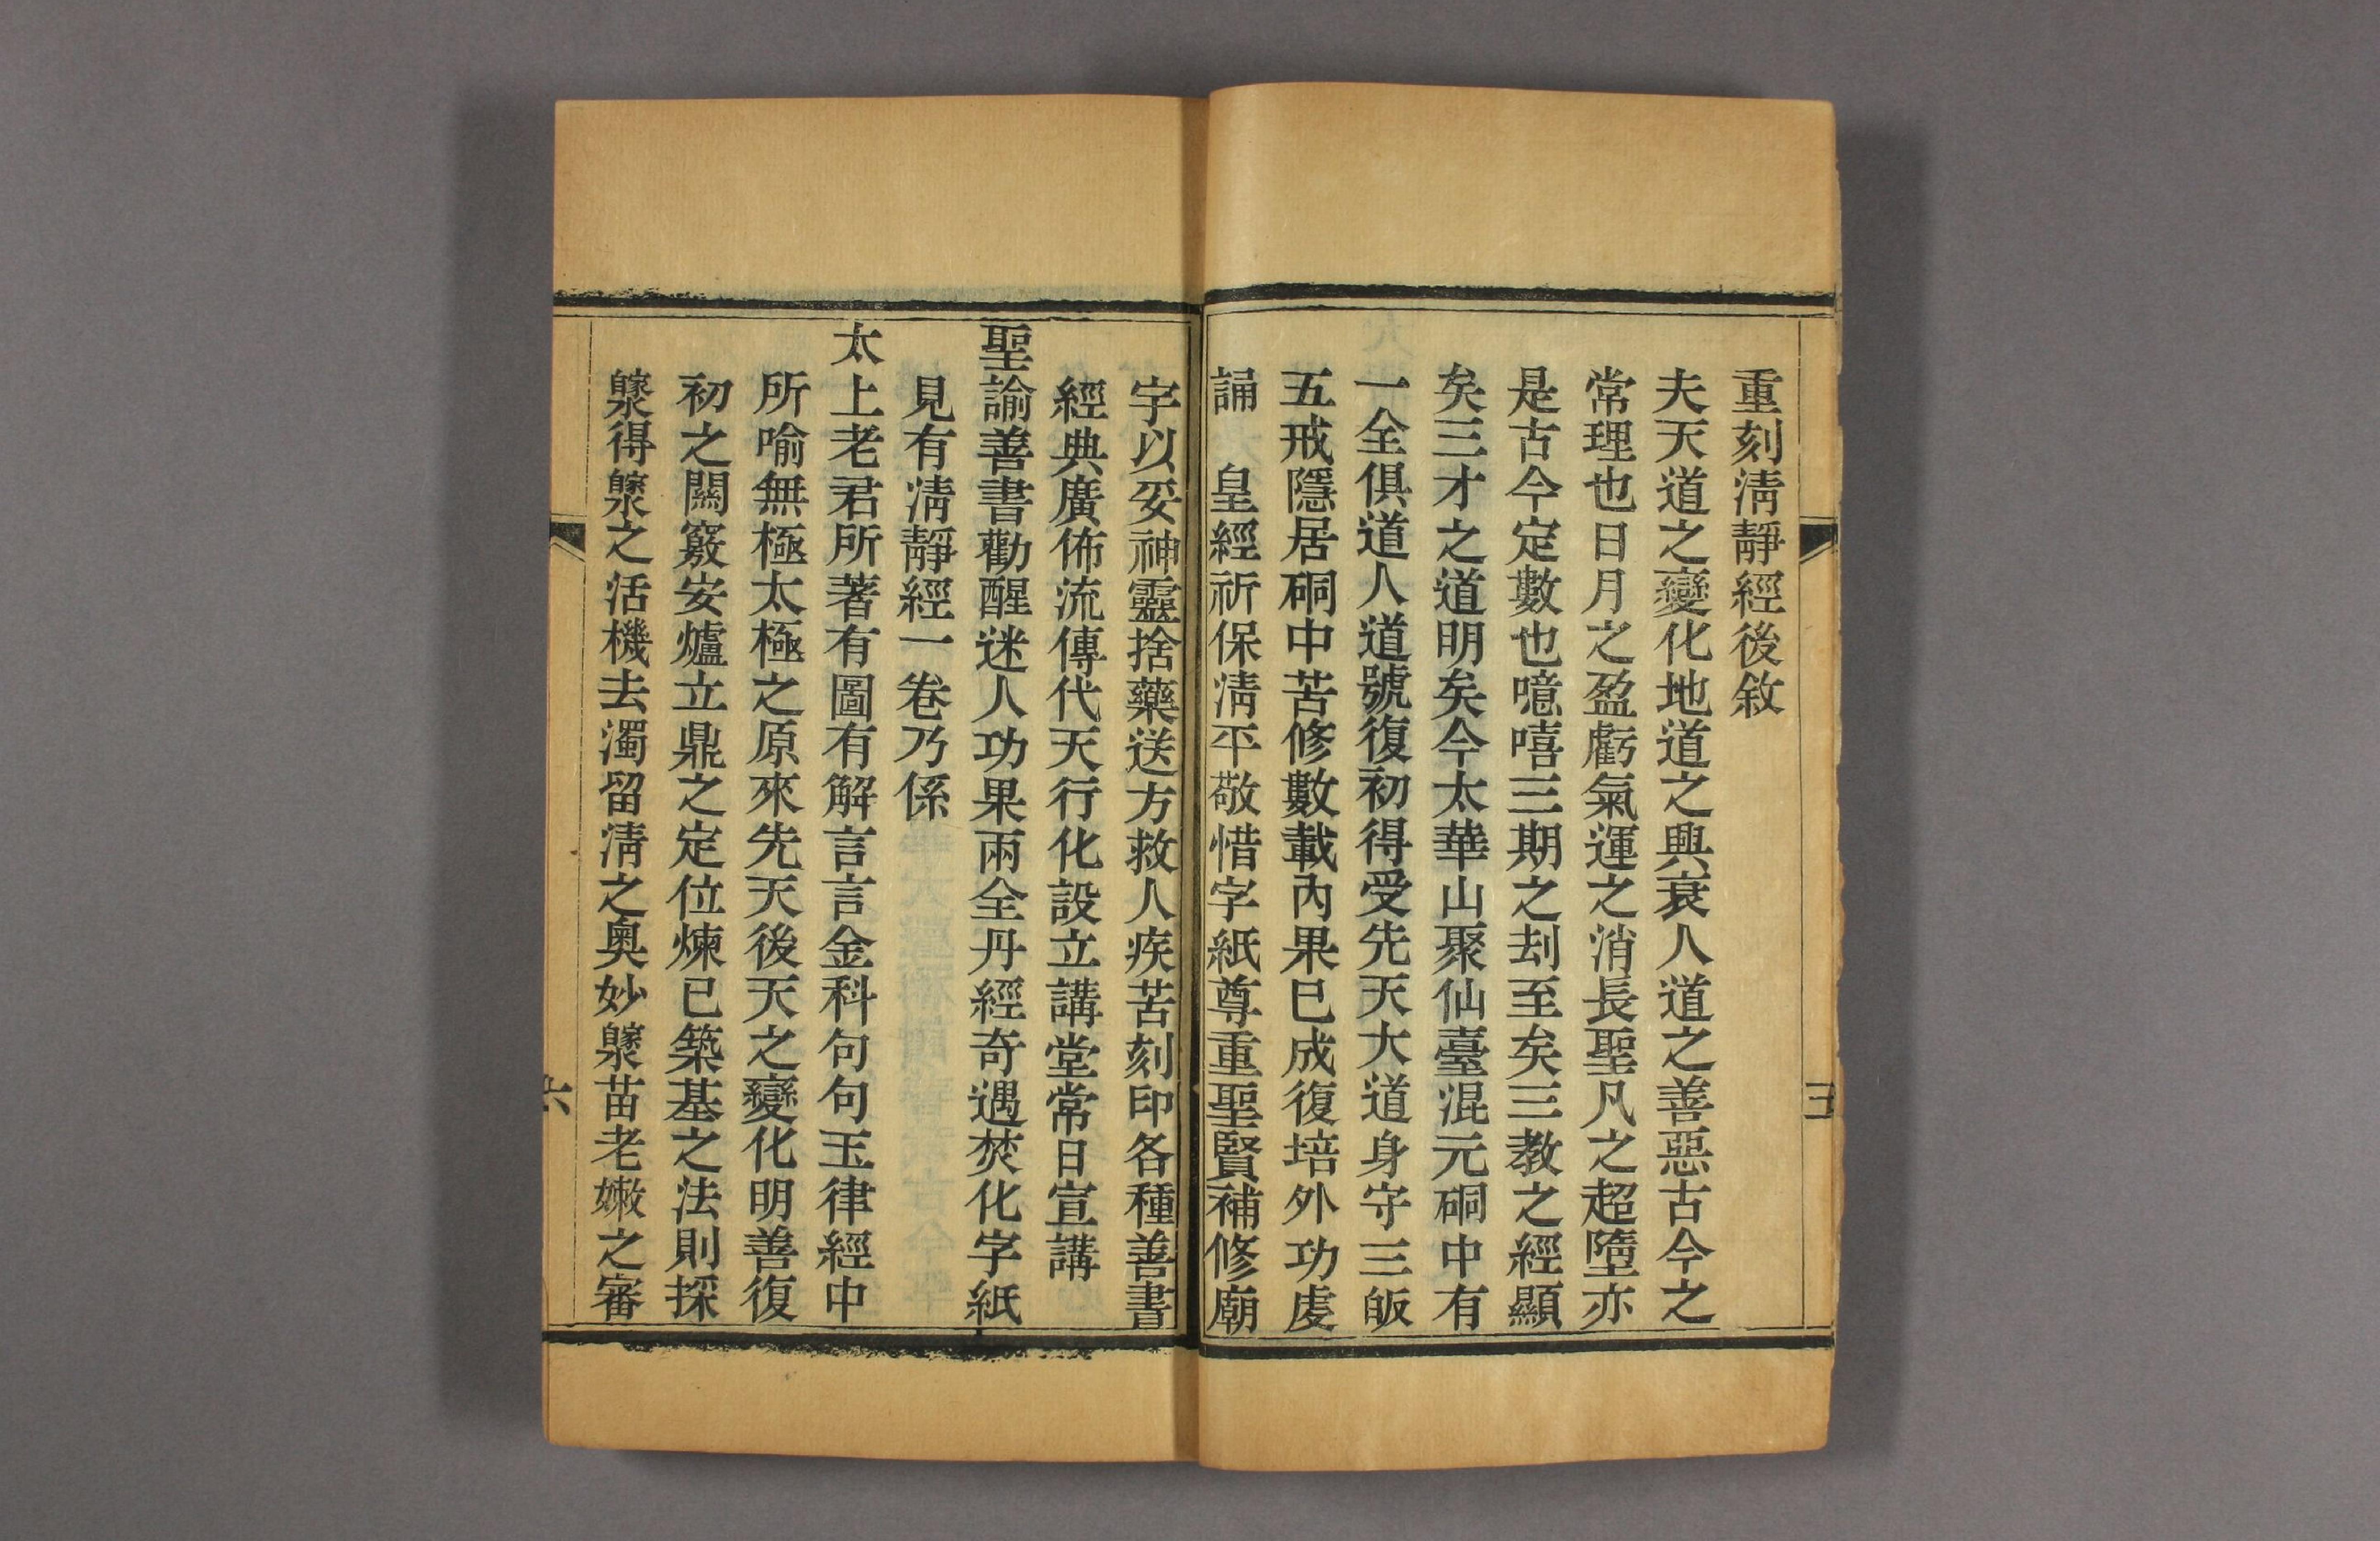 重刻淸靜經後敘
夫天道之變化地道之興衰人道之善惡古今之
常理也日月之盈虧氣運之消長聖凡之超墮亦
是古今定數也噫嘻三期之刦至矣三教之經顯
矣三才之道明矣今太華山聚仙臺混元硐中有
一全俱道人道號復初得受先天大道身守三皈
五戒隱居硐中苦修數載內果已成復培外功虔
誦　皇經祈保淸平敬惜字紙尊重聖賢補修廟
宇以妥神靈捨藥送方救人疾苦刻印各種善書
經典廣佈流傳代天行化設立講堂常日宣講
聖諭善書勸醒迷人功果兩全丹經奇遇焚化字紙
見有淸靜經一卷乃係
太上老君所著有圖有解言言金科句句玉律經中
所喻無極太極之原來先天後天之變化明善復
初之關竅安爐立鼎之定位煉已築基之法則採
得之活機去濁留淸之奥妙苗老嫩之審
三
六